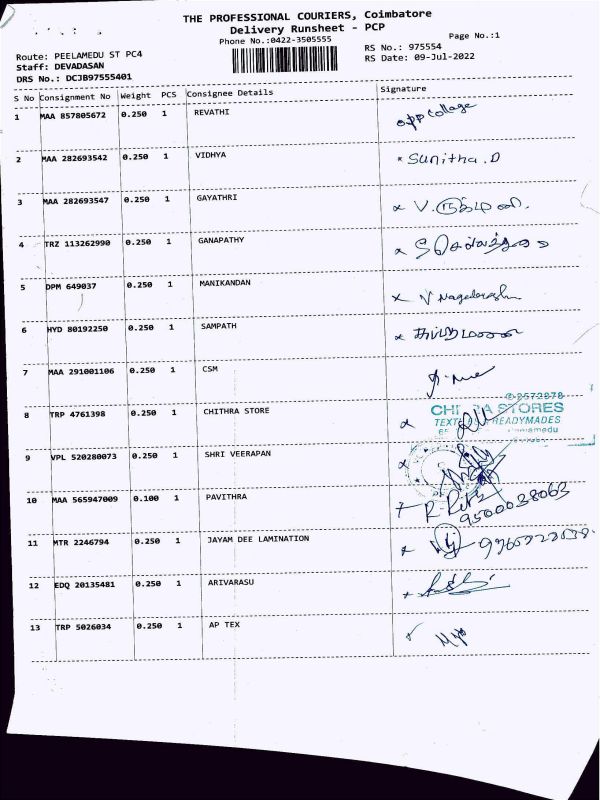 THE PROFESSIONAL COURIERS, Coimbatore
Delivery Runsheet - PCP
Phone No.:0422-3505555
Page No.:1
Route: PEELAMEDU ST PC4
RS No.: 975554
Staff: DEVADASAN
RS Date: 09-Jul-2022
DRS No.: DCJB97555401
S No Consignment No Weight PCS Consignee Details Signature
1 MAA 857805672 0.250 1 REVATHI opp collage
2 MAA 282693542 0.250 1 VIDHYA Sunitha.D
3 MAA 282693547 0.250 1 GAYATHRI
4 TRZ 113262990 0.250 1 GANAPATHY
5 DPM 649037 0.250 1 MANIKANDAN
6 HYD 80192250 0.250 1 SAMPATH
7 MAA 291001106 0.250 1 CSM
8 TRP 4761398 0.250 1 CHITHRA STORE
STORES
READYMADES
9 VPL 520280073 0.250 1 SHRI VEERAPAN
10 MAA 565947009 0.100 1 PAVITHRA
9500038063
11 MTR 2246794 0.250 1 JAYAM DEE LAMINATION
12 EDQ 20135481 0.250 1 ARIVARASU
13 TRP 5026034 0.250 1 AP TEX